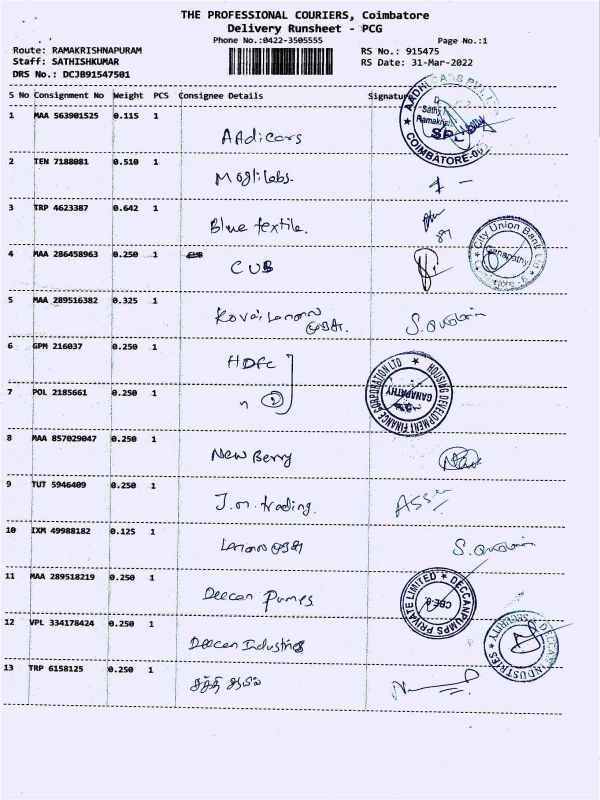 THE PROFESSIONAL COURIERS, Coimbatore
Delivery Runsheet - PCG
Phone No.:0422-3505555
Page No.:1
Route: RAMAKRISHNAPURAM
RS No.: 915475
Staff: SATHISHKUMAR
RS Date: 31-Mar-2022
DRS No.: DCJB91547501
S No Consignment No Weight PCS Consignee Details Signature
1 MAA 563901525 0.115 1 AAdicars
COIMBATORE
2 TEN 7188081 0.510 1 Moglilabs.
3 TRP 4623387 0.642 1 Blue textile.
4 MAA 286458963 0.250 1 CUB
City Union Bank Ltd
Ganapathy
5 MAA 289516382 0.325 1
6 GPM 216037 0.250 1 HDFC
HOUSING DEVELOPMENT FINANCE CORPORATION LTD
GANAPATHY
7 POL 2185661 0.250 1 " 2
8 MAA 857029047 0.250 1 New Berry
9 TUT 5946409 0.250 1 J.m. trading.
10 IXM 49988182 0.125 1
11 MAA 289518219 0.250 1 Deecan Pumps
DECCANPUMPS PRIVATE LIMITED
CBE-6
12 VPL 334178424 0.250 1 Deecan Industries
DECCAN INDUSTRIES
SECURITY
13 TRP 6158125 0.250 1